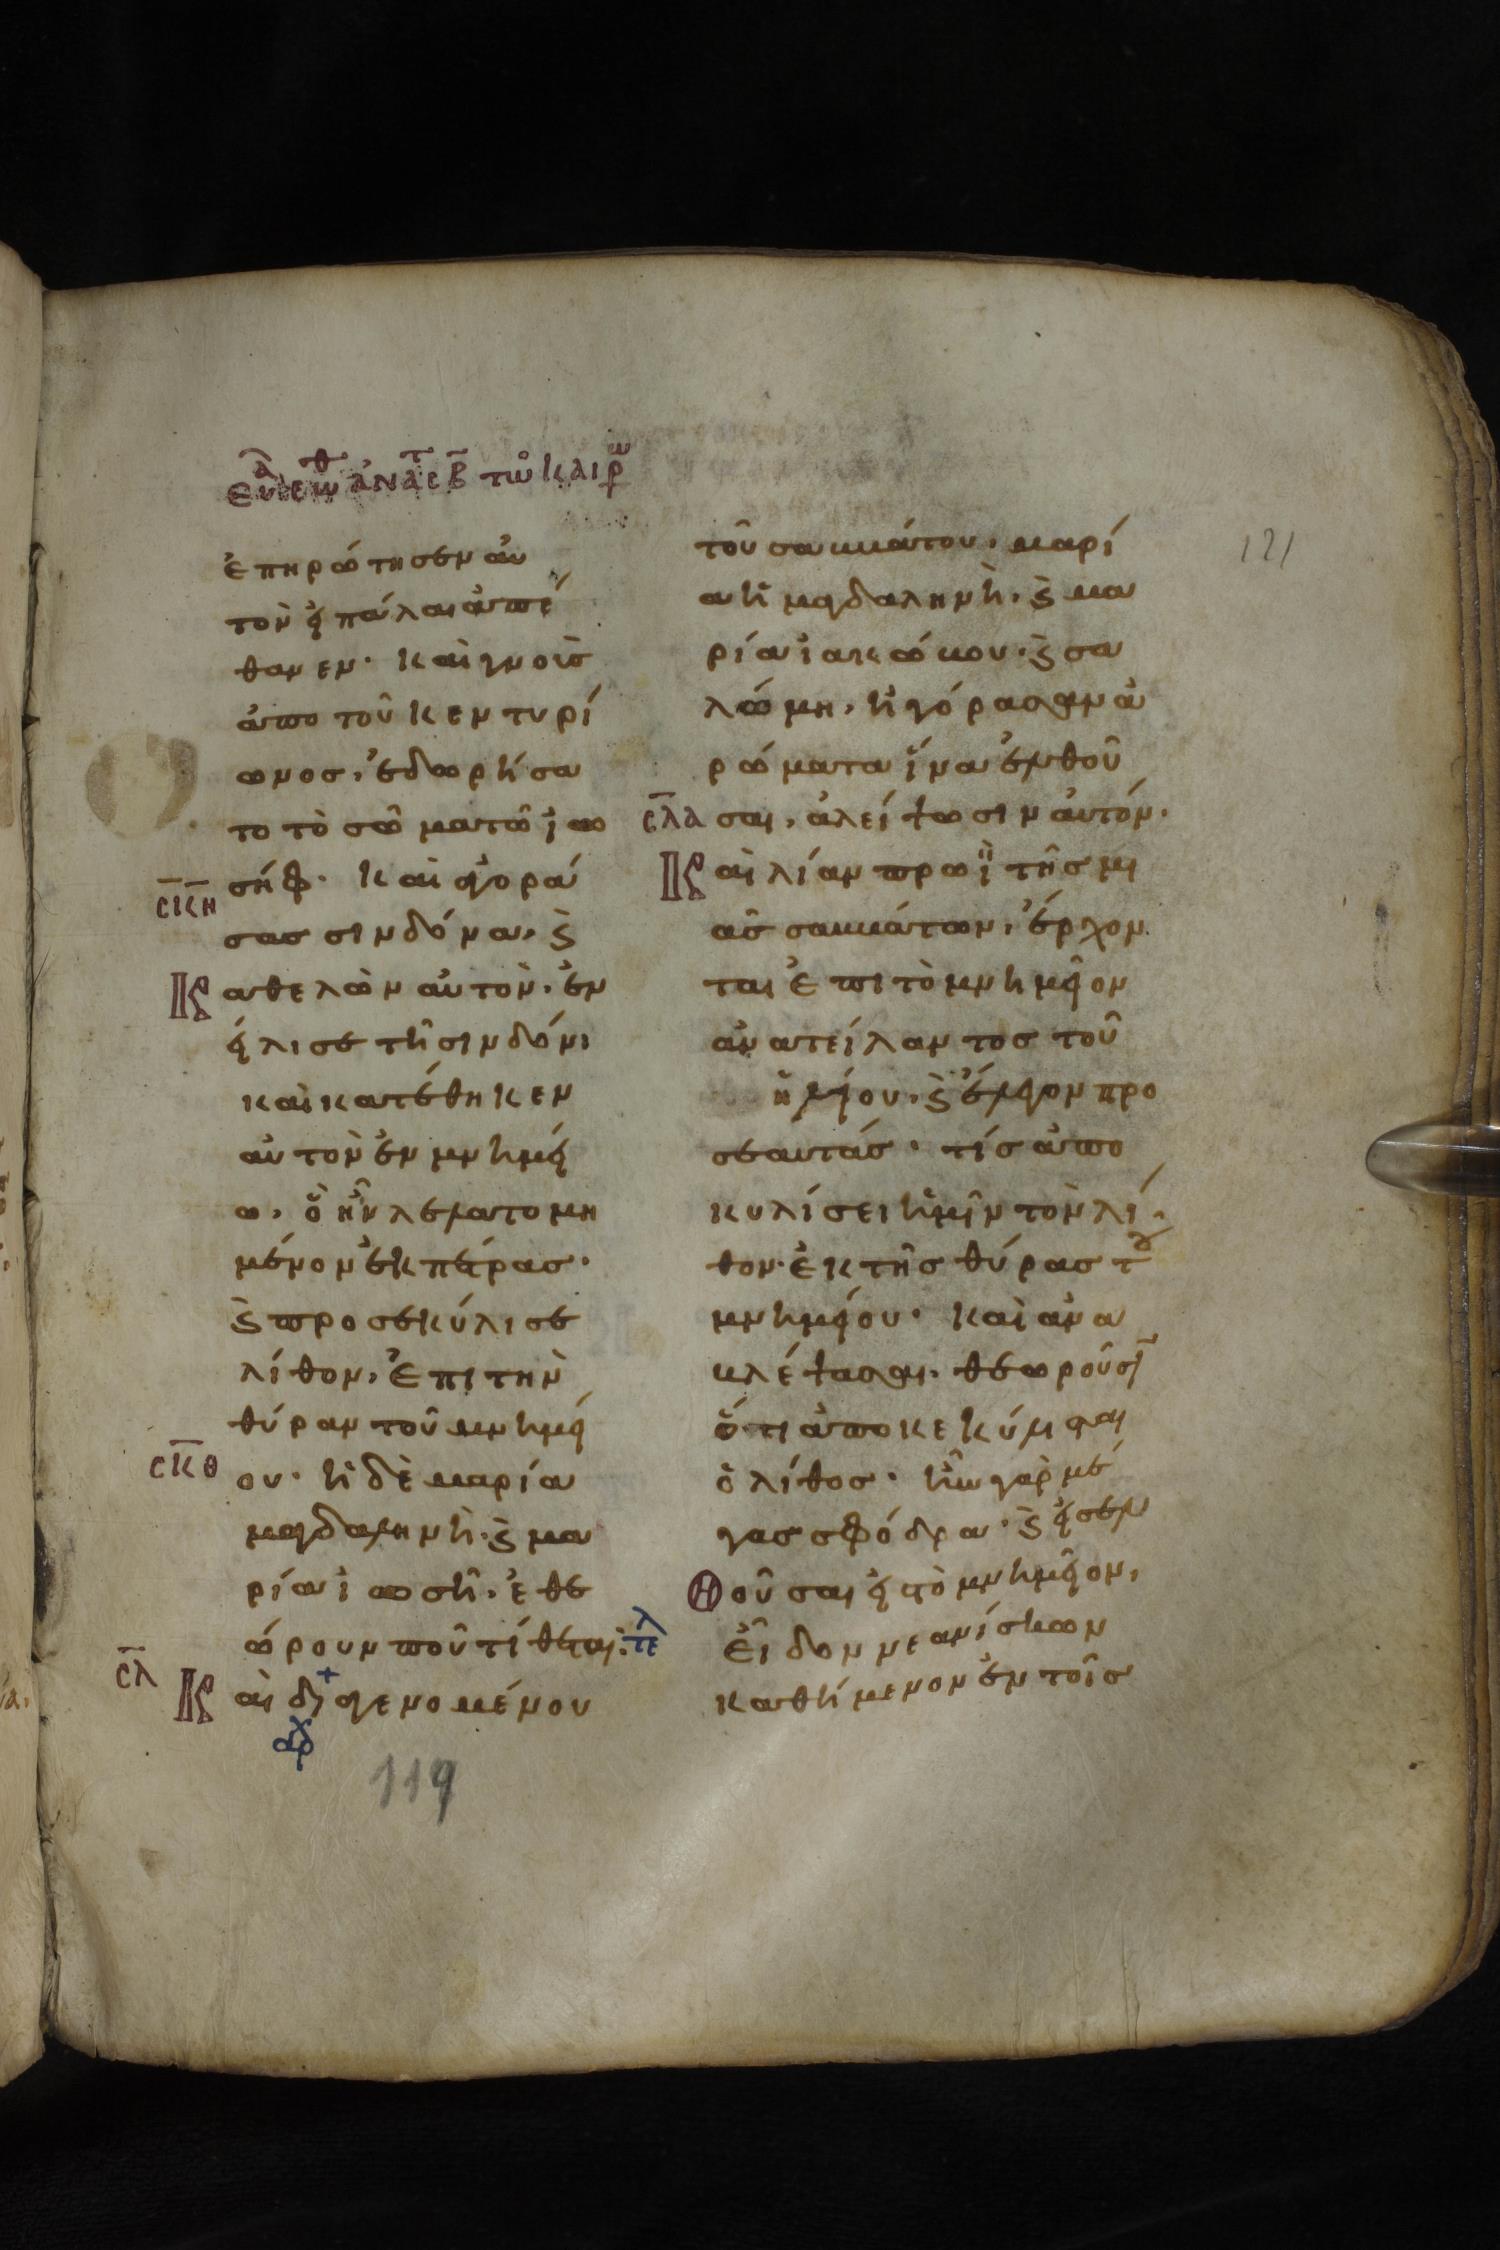 ἐπηρώτησεν αὐ
τὸν εἰ πάλαι ἀπέ
θανεν· καὶ γνοὺς
ἀπο τοῦ κεντυρί
ωνος, ἐδωρήσα
το τὸ σῶμα τῶ ἰω
σήφ· καὶ ἀγορά
σκη
σας σινδόνα, ϗ
Καθελὼν αὐτὸν, ἐν
είλισε τῆ σινδόνι
καὶ κατέθηκεν
αὐτὸν ἐν μνημεί
ω, ὃ ἦν λελατομη
μένον ἐκ πέτρας·
ϗ προσεκύλισε
λίθον, ἐπι τὴν
θύραν τοῦ μνημεί
σκθ
ου· ἡ δὲ μαρία
μαγδαληνὴ, ϗ μα
ρία ἰωσῆ, ἐθε
ώρουν ποῦ τίθεται· τε^λ
σλ
Καὶ διαγενομένου
αρχ
119
121
τοῦ σαββάτου, μαρί
α ἡ μαγδαληνὴ, ϗ μα
ρία ἰακώβου, ϗ σα
λώμη, ἠγόρασαν ἀ
ρώματα ἵνα ἐλθοῦ
σλα
σαι, ἀλείψωσιν αὐτόν·
Καὶ λίαν πρωῒ τῆς μι
ᾶς σαββάτων, ἔρχον
ται ἐπι τὸ μνημεῖον
ἀνατείλαντος τοῦ
ἡλίου, ϗ ἔλεγον προ
σεαυτάς· τίς ἀπο
κυλίσει ἡμῖν τὸν λί
θον· ἐκ τῆς θύρας τȣ
μνημείου· καὶ ἀνα
βλέψασαι, θεωροῦσι
ὅτι ἀποκεκύλισται
ὁ λίθος· ἦν γὰρ μέ
γας σφόδρα· ϗ εἰσελ
Θοῦσαι εἰς τὸ μνημεῖον,
εἶδον νεανίσκον
καθήμενον ἐν τοῖς